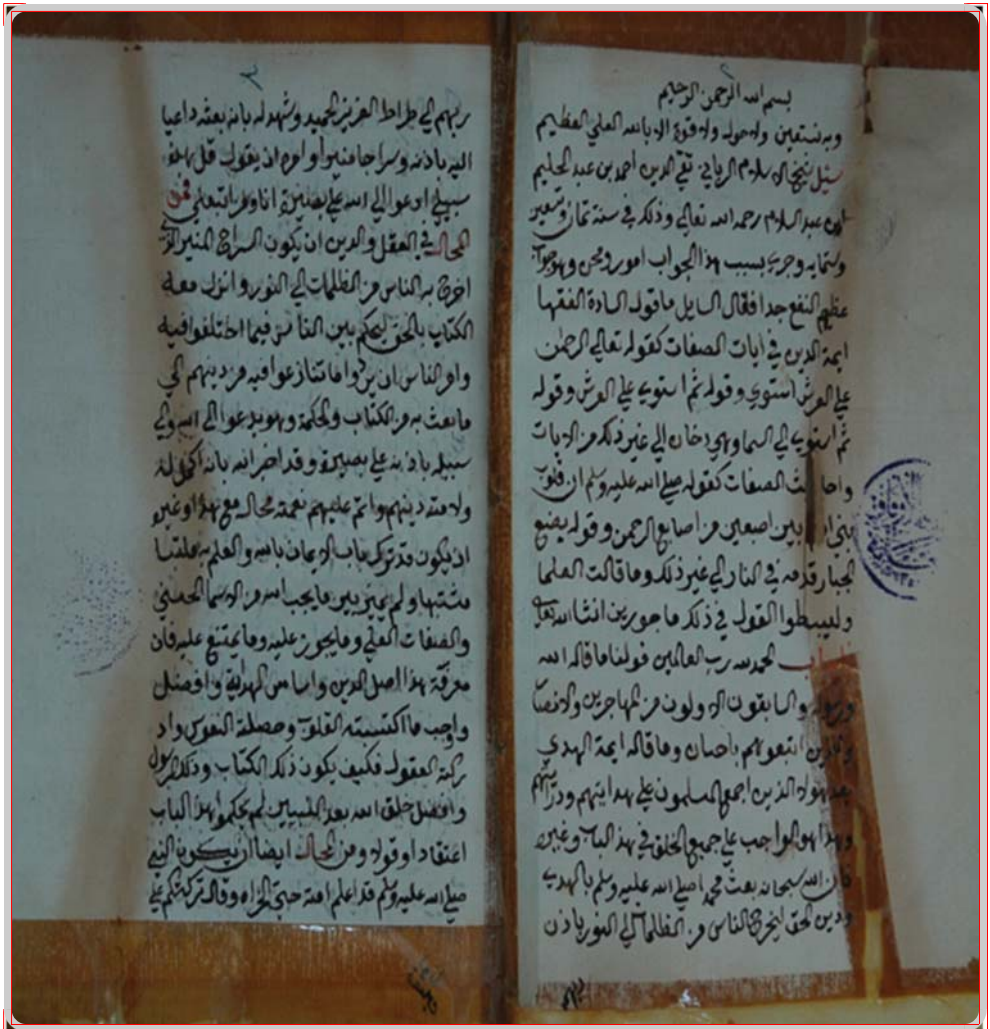 بسم الله الرحمن الرحيم
وبه نستعين ولا حول ولا قوة الا بالله العلي العظيم
سئل شيخ الاسلام الرباني تقي الدين احمد بن عبد الحليم
ابن عبد السلام رحمه الله تعالي وذلك في سنة ثمان وتسعين
وستمايه وجري بسبب هذا الجواب امور ومحن وهو جواب
عظيم النفع جدا فقال السايل ما قول السادة الفقها
ايمة الدين في ايات الصفات كقوله تعالي الرحمن
علي العرش استوي وقوله ثم استوي علي العرش وقوله
ثم استوي الي السما وهي دخان الي غير ذلك من الايات
واحاديث الصفات كقوله صلي الله عليه وسلم ان قلوب
بني ادم بين اصبعين من اصابع الرحمن وقوله يضع
الجبار قدمه في النار الي غير ذلك وما قالت العلما
وليبسطوا القول في ذلك ماجورين ان شا الله تعالي
الجواب الحمد لله رب العالمين قولنا ما قاله الله
ورسوله والسابقون الاولون من المهاجرين والانصار
والذين اتبعوهم باحسان وما قاله ايمة الهدي
بعد هولاء الذين اجمع المسلمون علي هدايتهم ودرايتهم
وهذا هو الواجب علي جميع الخلق في هذا الباب وغيره
فان الله سبحانه بعث محمدا صلي الله عليه وسلم بالهدي
ودين الحق ليخرج الناس من الظلمات الي النور باذن
ربهم
٢
ربهم الي صراط العزيز الحميد وشهد له بانه بعثه داعيا
اليه باذنه وسراجا منيرا وامره ان يقول قل هذه
سبيلي ادعوا الي الله علي بصيرة انا ومن اتبعني فمن
المحال في العقل والدين ان يكون السراج المنير الذي
اخرج به الناس من الظلمات الي النور وانزل معه
الكتاب بالحق ليحكم بين الناس فيما اختلفوا فيه
وامر الناس ان يردوا ما تنازعوا فيه من دينهم الي
ما بعث به من الكتاب والحكمة وهو يدعوا الي الله والي
سبيله باذنه علي بصيرة وقد اخبر الله بانه اكمل له
ولامته دينهم واتم عليهم نعمته محال مع هذا وغيره
ان يكون قد ترك باب الايمان بالله والعلم به ملتبسا
مشتبها ولم يميز بين ما يجب لله من الاسما الحسني
والصفات العلي وما يجوز عليه وما يمتنع عليه فان
معرفة هذا اصل الدين واساس الهداية وافضل
واوجب ما اكتسبته القلوب وحصلته النفوس واد
ركته العقول فكيف يكون ذلك الكتاب وذلك الرسول
وافضل خلق الله بعد النبيين لم يحكموا هذا الباب
اعتقادا وقولا ومن المحال ايضا ان يكون النبي
صلي الله عليه وسلم قد اعلم امته حتي الخراه وقال تركتكم علي